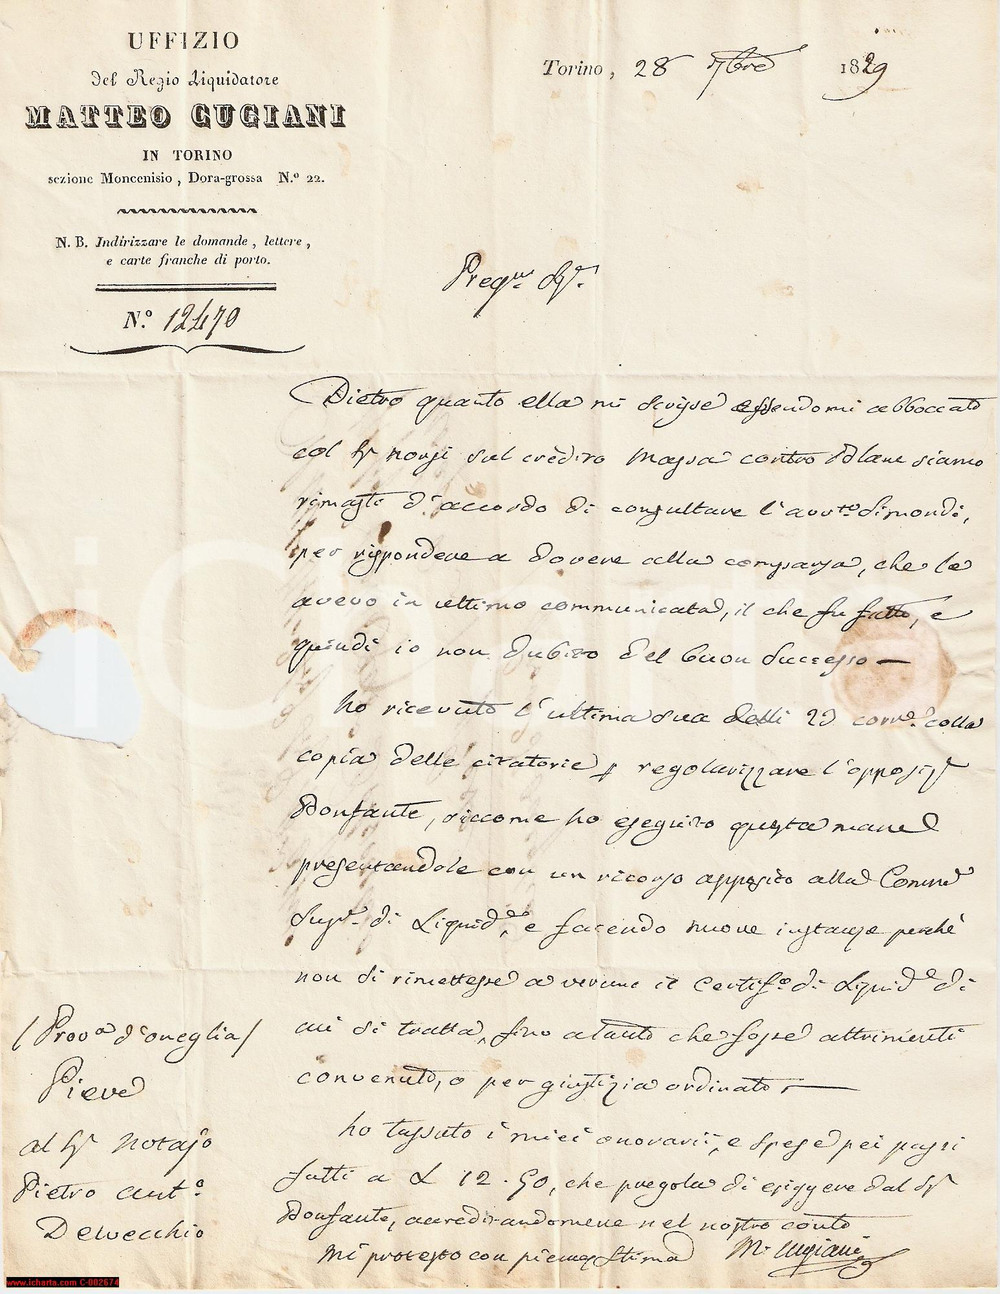 UFFIZIO
del Regio Liquidatore
MATTEO CUGIANI
IN TORINO
sezione Moncenisio, Dora-grossa N.º 22.
N. B. Indirizzare le domande, lettere,
e carte franche di porto.
N.º 12470
Torino, 28 7bre 1829
Preg.mo Sig.e
Dietro quanto ella mi scrisse essendomi abboccato
col Sr sul credito Massa contro siamo
rimasti d'accordo di consultare l'avv.to Simondi,
per rispondere a dovere alla comparsa, che le
avevo in ultimo communicata, il che fu fatto, e
quindi io non dubito del buon successo —
ho ricevuto l'ultima sua delli 23 corr.e colla
copia delle citatorie p regolarizzare l'opposiz.e
Bonfante, siccome ho eseguito questa mane
presentandole con un ricorso apposito alla Comm.e
Sup.e di Liquid.ne, e facendo nuove instanze perchè
non si rimettesse a veruno il Certif.o di Liquid.e di
cui si tratta, fino a tanto che fosse altrimenti
convenuto, o per giustizia ordinato, —
ho tassato i miei onorarii, e spese pei passi
fatti a L 12.50, che pregola di esiggere dal Sr
Bonfante, accreditandomene nel nostro conto
Mi protesto con pienezza stima M. Cugiani
(Prov.a d'oneglia)
Pieve
al Sr Notajo
Pietro Ant.o
Delvecchio
iCharta
www.icharta.com C-002674